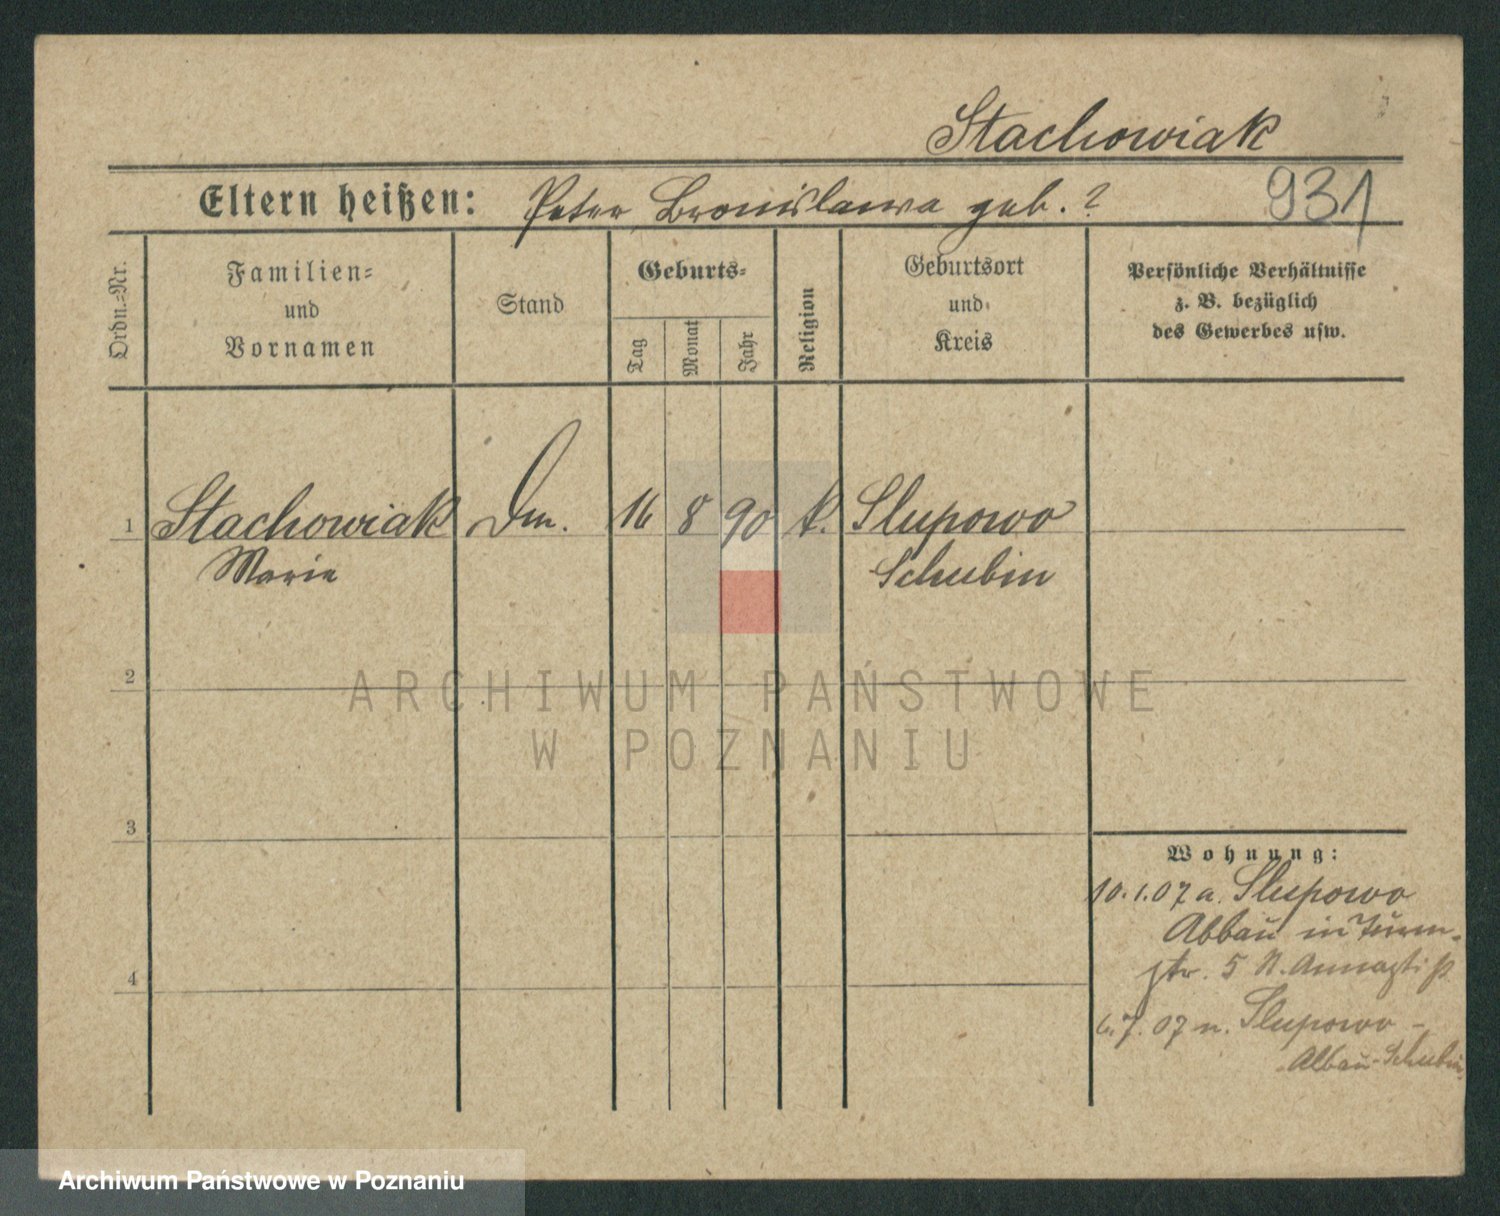 Stachowiak
Eltern heißen: Peter Bronislawa geb. ?
931
Ordn.=Nr.
Familien=
und
Vornamen
Stand
Geburts=
Tag
Monat
Jahr
Religion
Geburtsort
und
Kreis
Persönliche Verhältnisse
z. B. bezüglich
des Gewerbes usw.
1 Stachowiak Dm. 16 8 90 k. Slupowo
Marie Schubin
2
ARCHIWUM PAŃSTWOWE
W POZNANIU
3
Wohnung:
10.1.07 a. Slupowo
Abbau in Turm-
str. 5 N.
4
6.7.07 n. Slupowo -
Abbau-Schubin
Archiwum Państwowe w Poznaniu